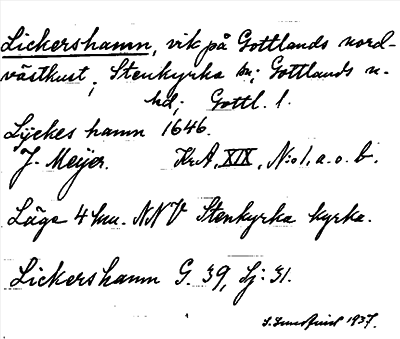 Lickershamn, vik på Gottlands nord-
västkust; Stenkyrka sn; Gottlands n.
hd; Gottl. l.
Lyckes hamn 1646.
J. Meijer. KrA, XIX, N:o 1, a. o. b.
Läge 4 km. NNV Stenkyrka kyrka.
Lickershamn G. 39, Lj: 31.
1937.